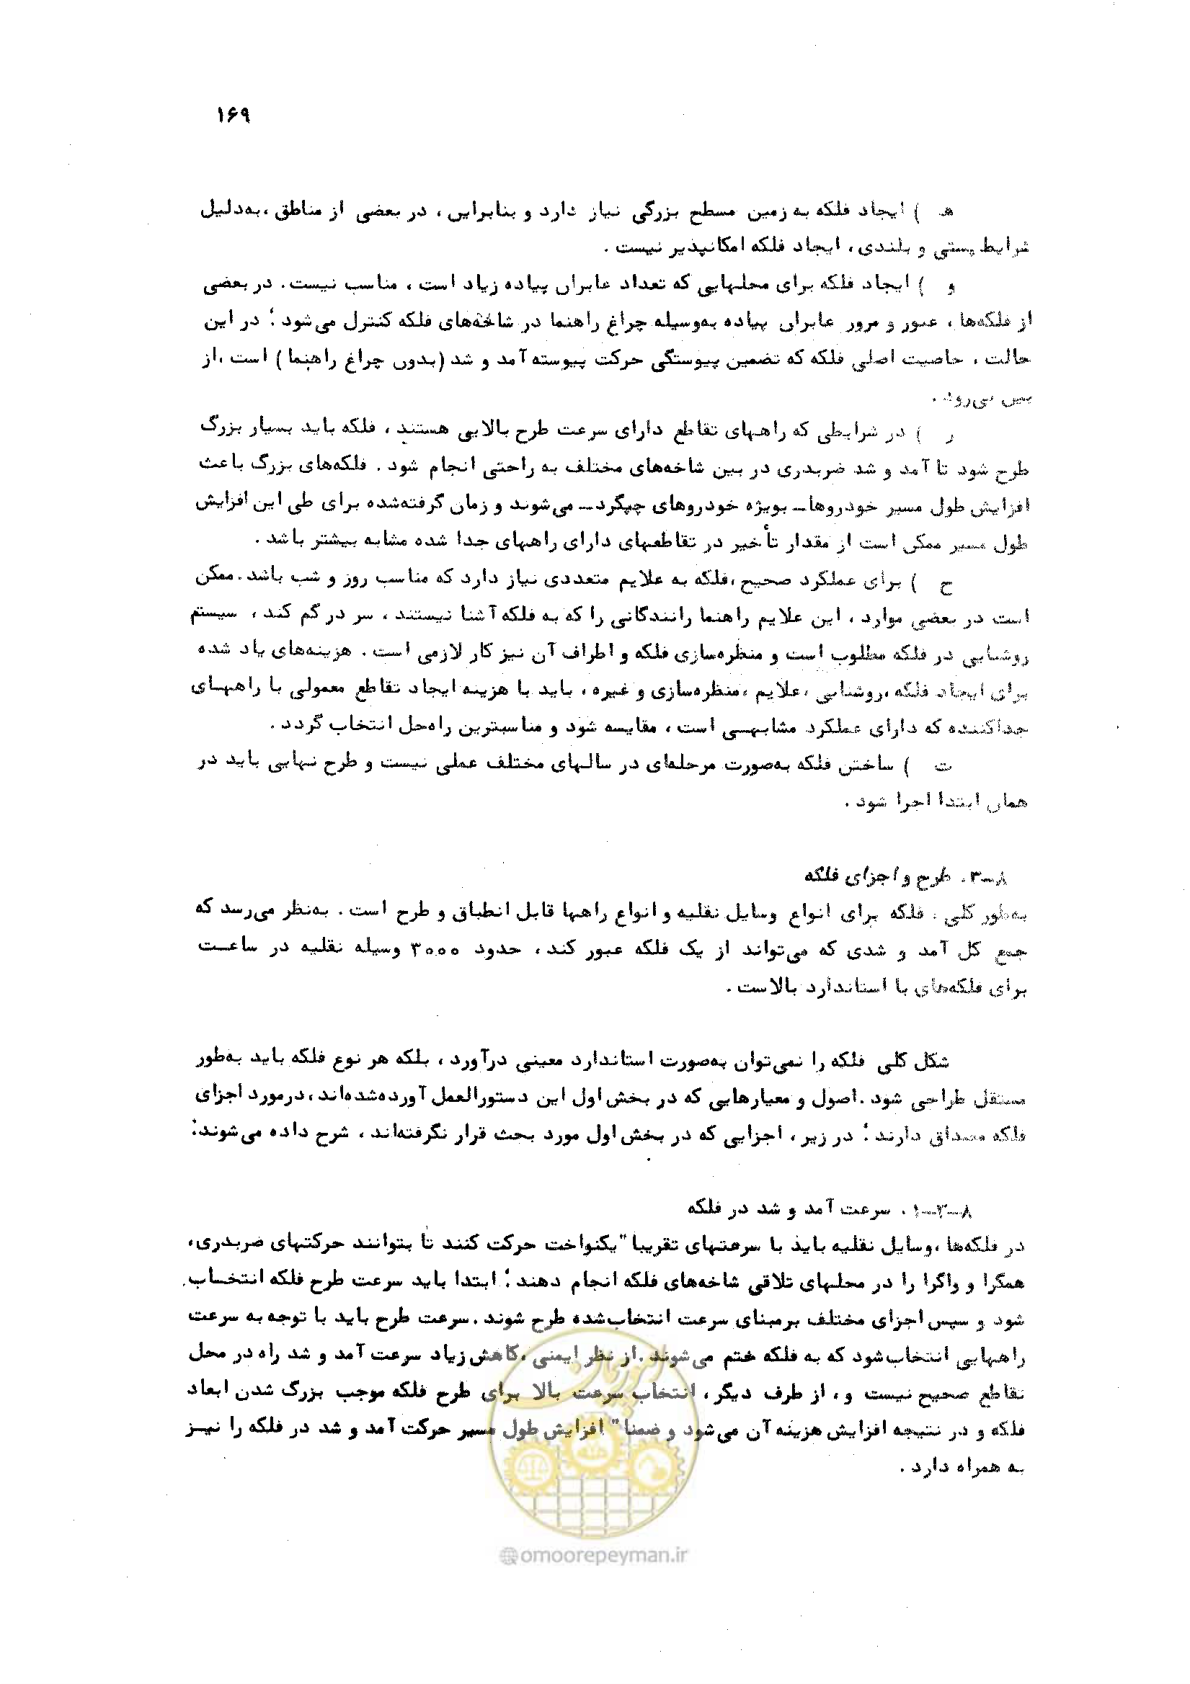 ۱۶۹
هـ ) ایجاد فلکه به زمین مسطح بزرگی نیاز دارد و بنابراین ، در بعضی از مناطق ،به‌دلیل
شرایط پستی و بلندی ، ایجاد فلکه امکانپذیر نیست .
و ) ایجاد فلکه برای محلهایی که تعداد عابران پیاده زیاد است ، مناسب نیست. در بعضی
از فلکه‌ها ، عبور و مرور عابران پیاده به‌وسیله چراغ راهنما در شاخه‌های فلکه کنترل می‌شود ؛ در این
حالت ، خاصیت اصلی فلکه که تضمین پیوستگی حرکت پیوسته آمد و شد (بدون چراغ راهنما ) است ،از
بین می‌رود .
ر ) در شرایطی که راههای تقاطع دارای سرعت طرح بالایی هستند ، فلکه باید بسیار بزرگ
طرح شود تا آمد و شد ضربدری در بین شاخه‌های مختلف به راحتی انجام شود . فلکه‌های بزرگ باعث
افزایش طول مسیر خودروها– بویژه خودروهای چپگرد– می‌شوند و زمان گرفته‌شده برای طی این افزایش
طول مسیر ممکن است از مقدار تأخیر در تقاطعهای دارای راههای جدا شده مشابه بیشتر باشد .
ح ) برای عملکرد صحیح ،فلکه به علایم متعددی نیاز دارد که مناسب روز و شب باشد .ممکن
است در بعضی موارد ، این علایم راهنما رانندگانی را که به فلکه آشنا نیستند ، سر در گم کند ، سیستم
روشنایی در فلکه مطلوب است و منظره‌سازی فلکه و اطراف آن نیز کار لازمی است . هزینه‌های یاد شده
برای ایجاد فلکه ،روشنایی ،علایم ،منظره‌سازی و غیره ، باید با هزینه ایجاد تقاطع معمولی با راههـای
جداکننده که دارای عملکرد مشابهـی است ، مقایسه شود و مناسبترین راه‌حل انتخاب گردد .
ت ) ساختن فلکه به‌صورت مرحله‌ای در سالهای مختلف عملی نیست و طرح نهایی باید در
همان ابتدا اجرا شود .
۸–۳. طرح و اجزای فلکه
به‌طور کلی ، فلکه برای انواع وسایل نقلیه و انواع راهها قابل انطباق و طرح است . به‌نظر می‌رسد که
جمع کل آمد و شدی که می‌تواند از یک فلکه عبور کند ، حدود ۳۰۰۰ وسیله نقلیه در ساعـت
برای فلکه‌های با استاندارد بالاست .
شکل کلی فلکه را نمی‌توان به‌صورت استاندارد معینی درآورد ، بلکه هر نوع فلکه باید به‌طور
مستقل طراحی شود .اصول و معیارهایی که در بخش اول این دستورالعمل آورده‌شده‌اند ،درمورد اجزای
فلکه مصداق دارند ؛ در زیر ، اجزایی که در بخش اول مورد بحث قرار نگرفته‌اند ، شرح داده می‌شوند:
۸–۳–۱ . سرعت آمد و شد در فلکه
در فلکه‌ها ،وسایل نقلیه باید با سرعتهای تقریبا" یکنواخت حرکت کنند تا بتوانند حرکتهای ضربدری،
همگرا و واگرا را در محلهای تلاقی شاخه‌های فلکه انجام دهند ؛ ابتدا باید سرعت طرح فلکه انتخـاب
شود و سپس اجزای مختلف برمبنای سرعت انتخاب‌شده طرح شوند .سرعت طرح باید با توجه به سرعت
راههایی انتخاب‌شود که به فلکه ختم می‌شوند .از نظر ایمنی ،کاهش زیاد سرعت آمد و شد راه در محل
تقاطع صحیح نیست و ، از طرف دیگر ، انتخاب سرعت بالا برای طرح فلکه موجب بزرگ شدن ابعاد
فلکه و در نتیجه افزایش هزینه آن می‌شود و ضمنا" افزایش طول مسیر حرکت آمد و شد در فلکه را نیـز
به همراه دارد .
omoorepeyman.ir